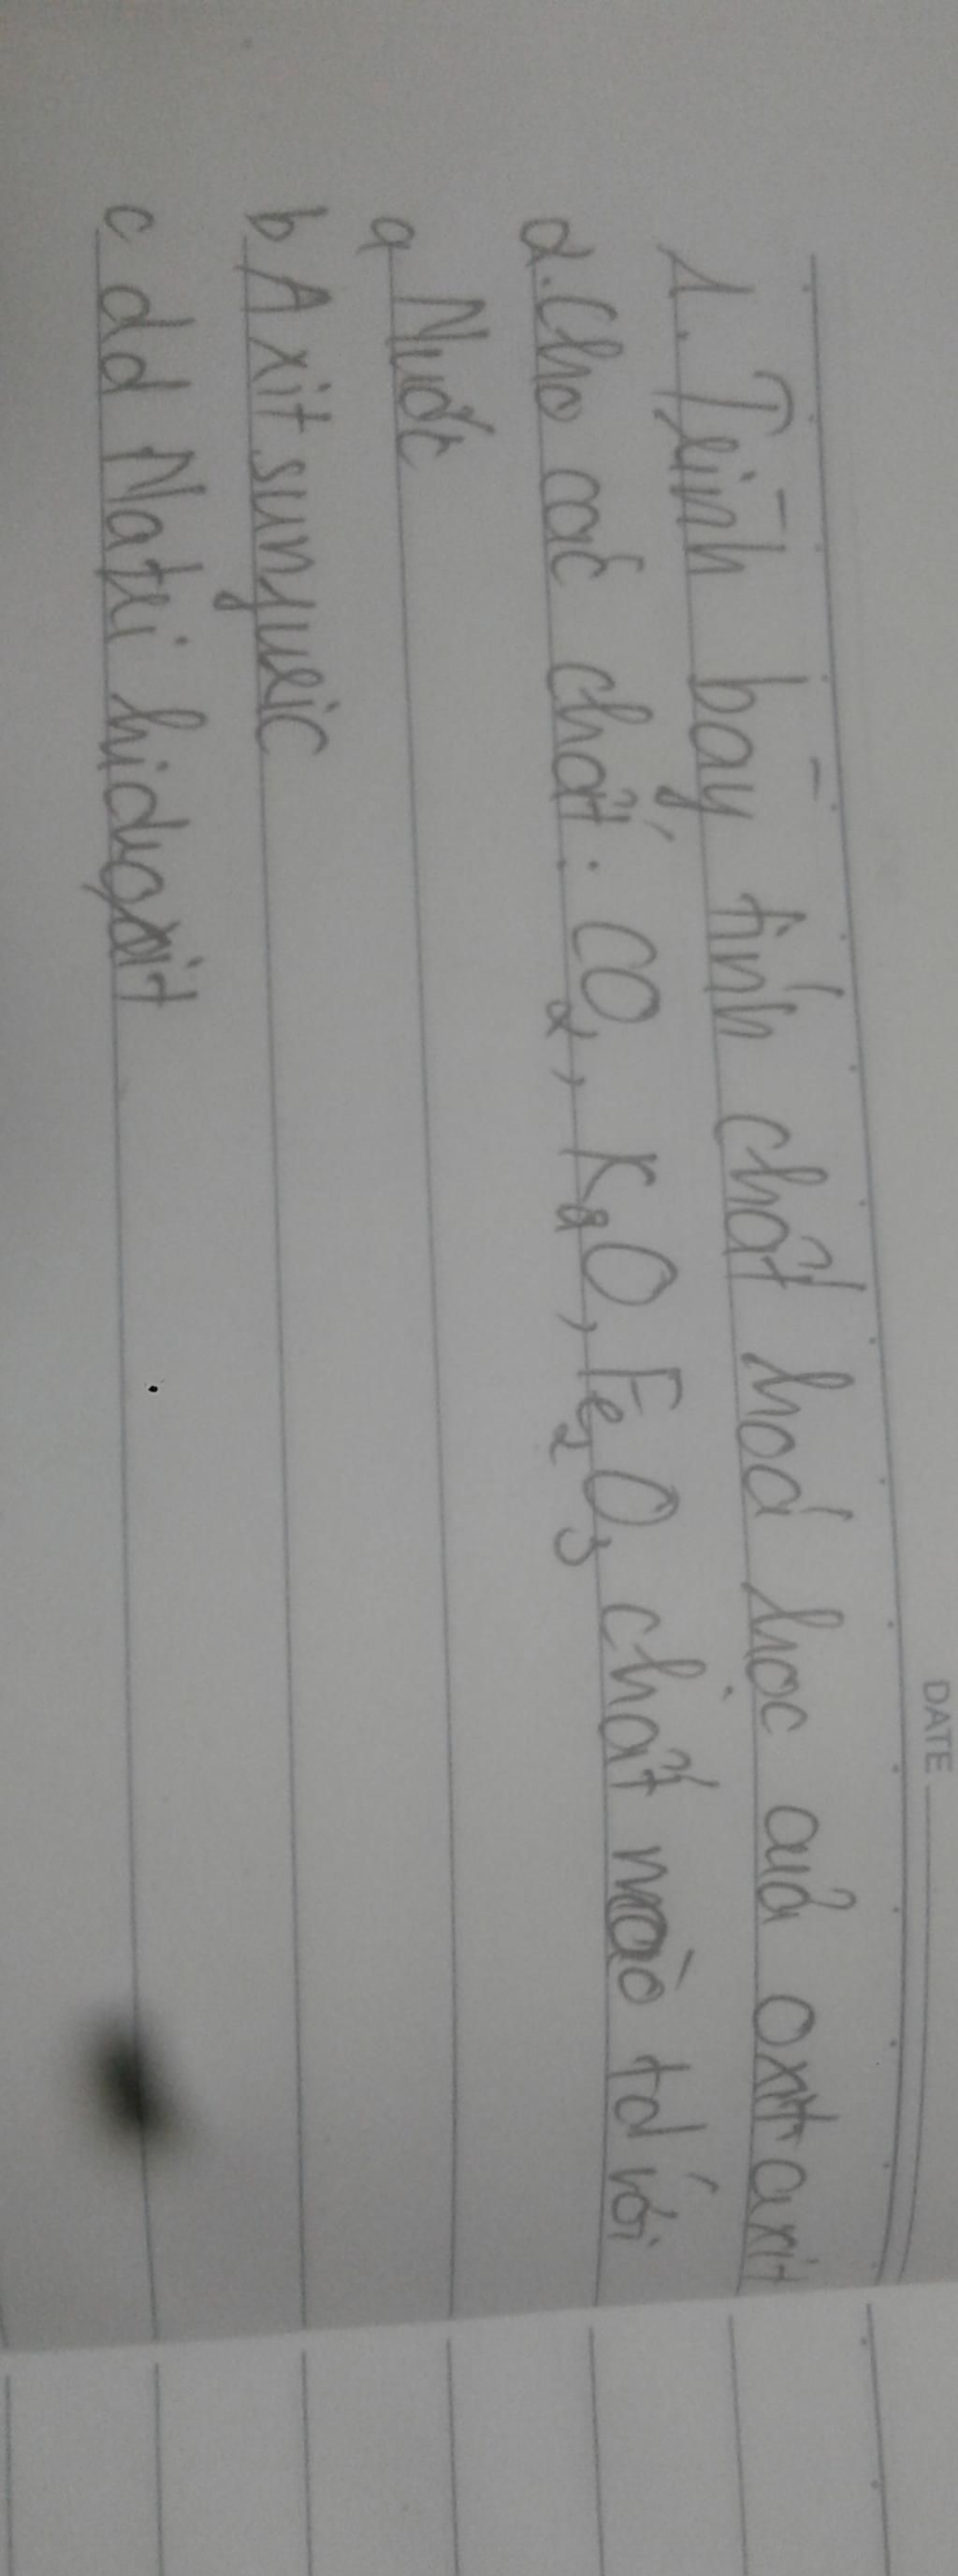 DATE
1. Trình bày tính chất hoá học của oxit axit
2. Cho các chất: CO2, K2O, Fe2O3 chất nào td với
a Nước
b Axit sunfuric
c dd Natri hidroxit